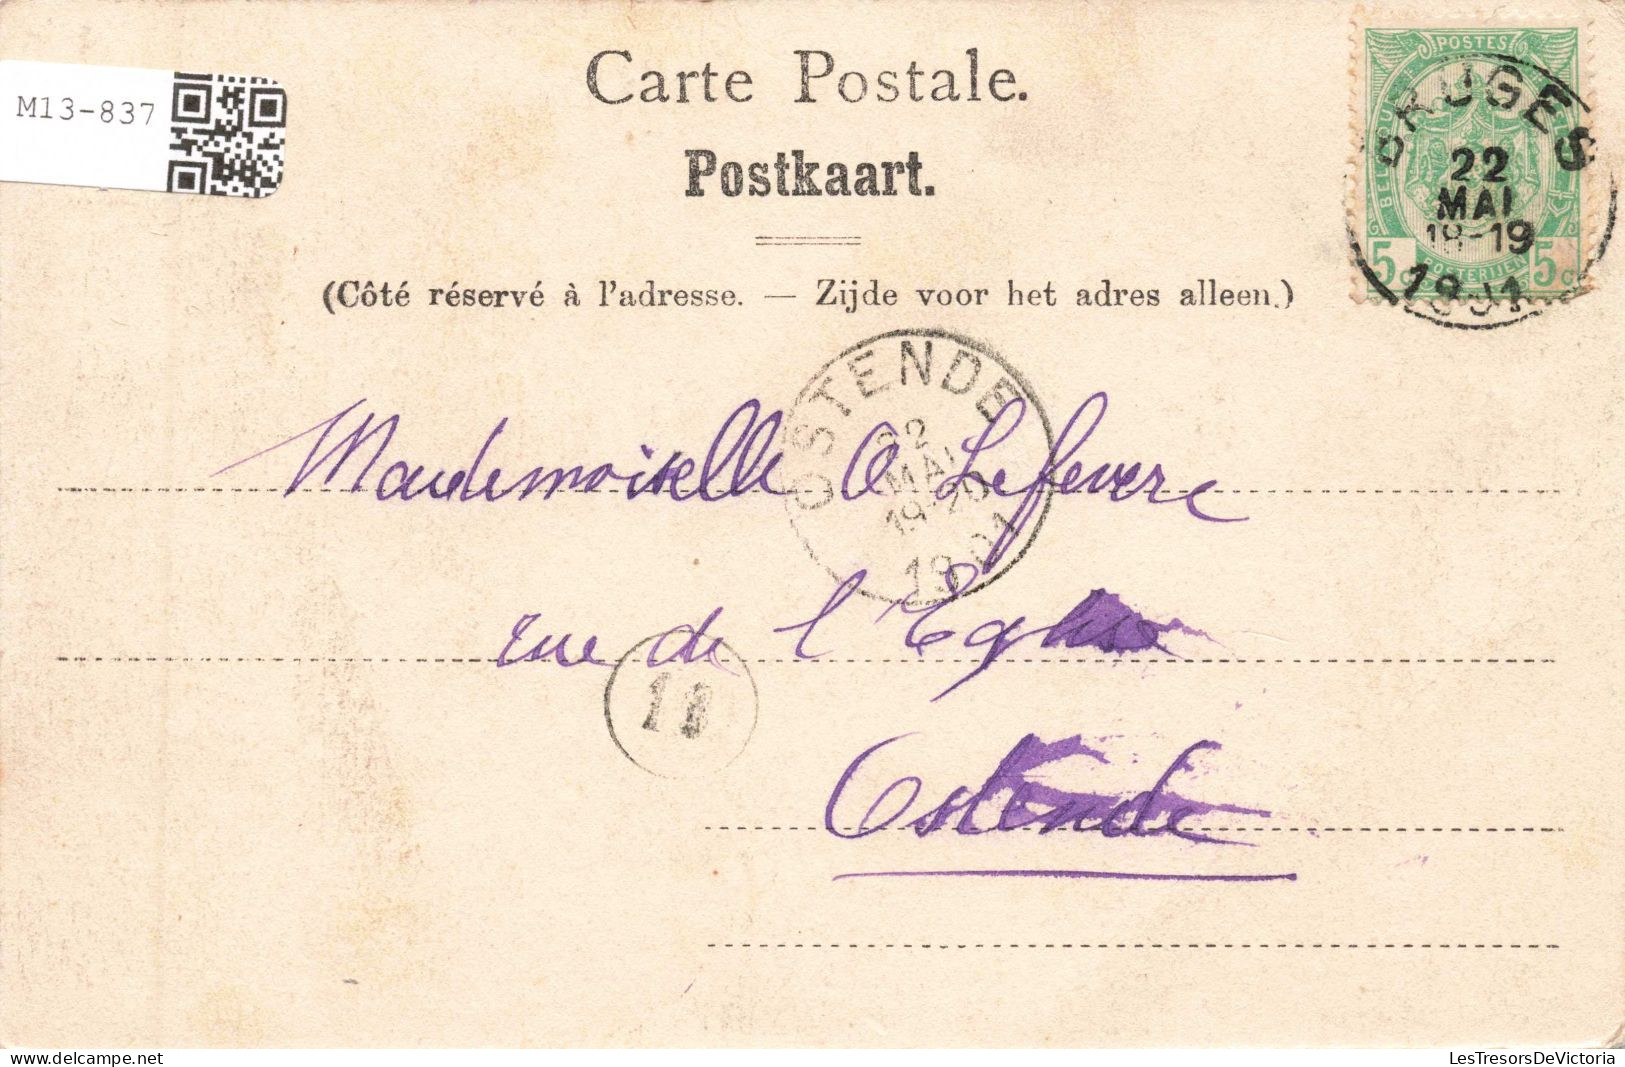 M13-837
Carte Postale.
Postkaart.
(Côté réservé à l'adresse. — Zijde voor het adres alleen.)
POSTES
BELGIQUE
5 c 5 c
POSTERIJEN
BRUGES
22
MAI
18-19
1901
OSTENDE
22
MAI
19-20
1901
Mademoiselle O Lefevere
rue de l'Eglise
Ostende
LesTresorsDeVictoria